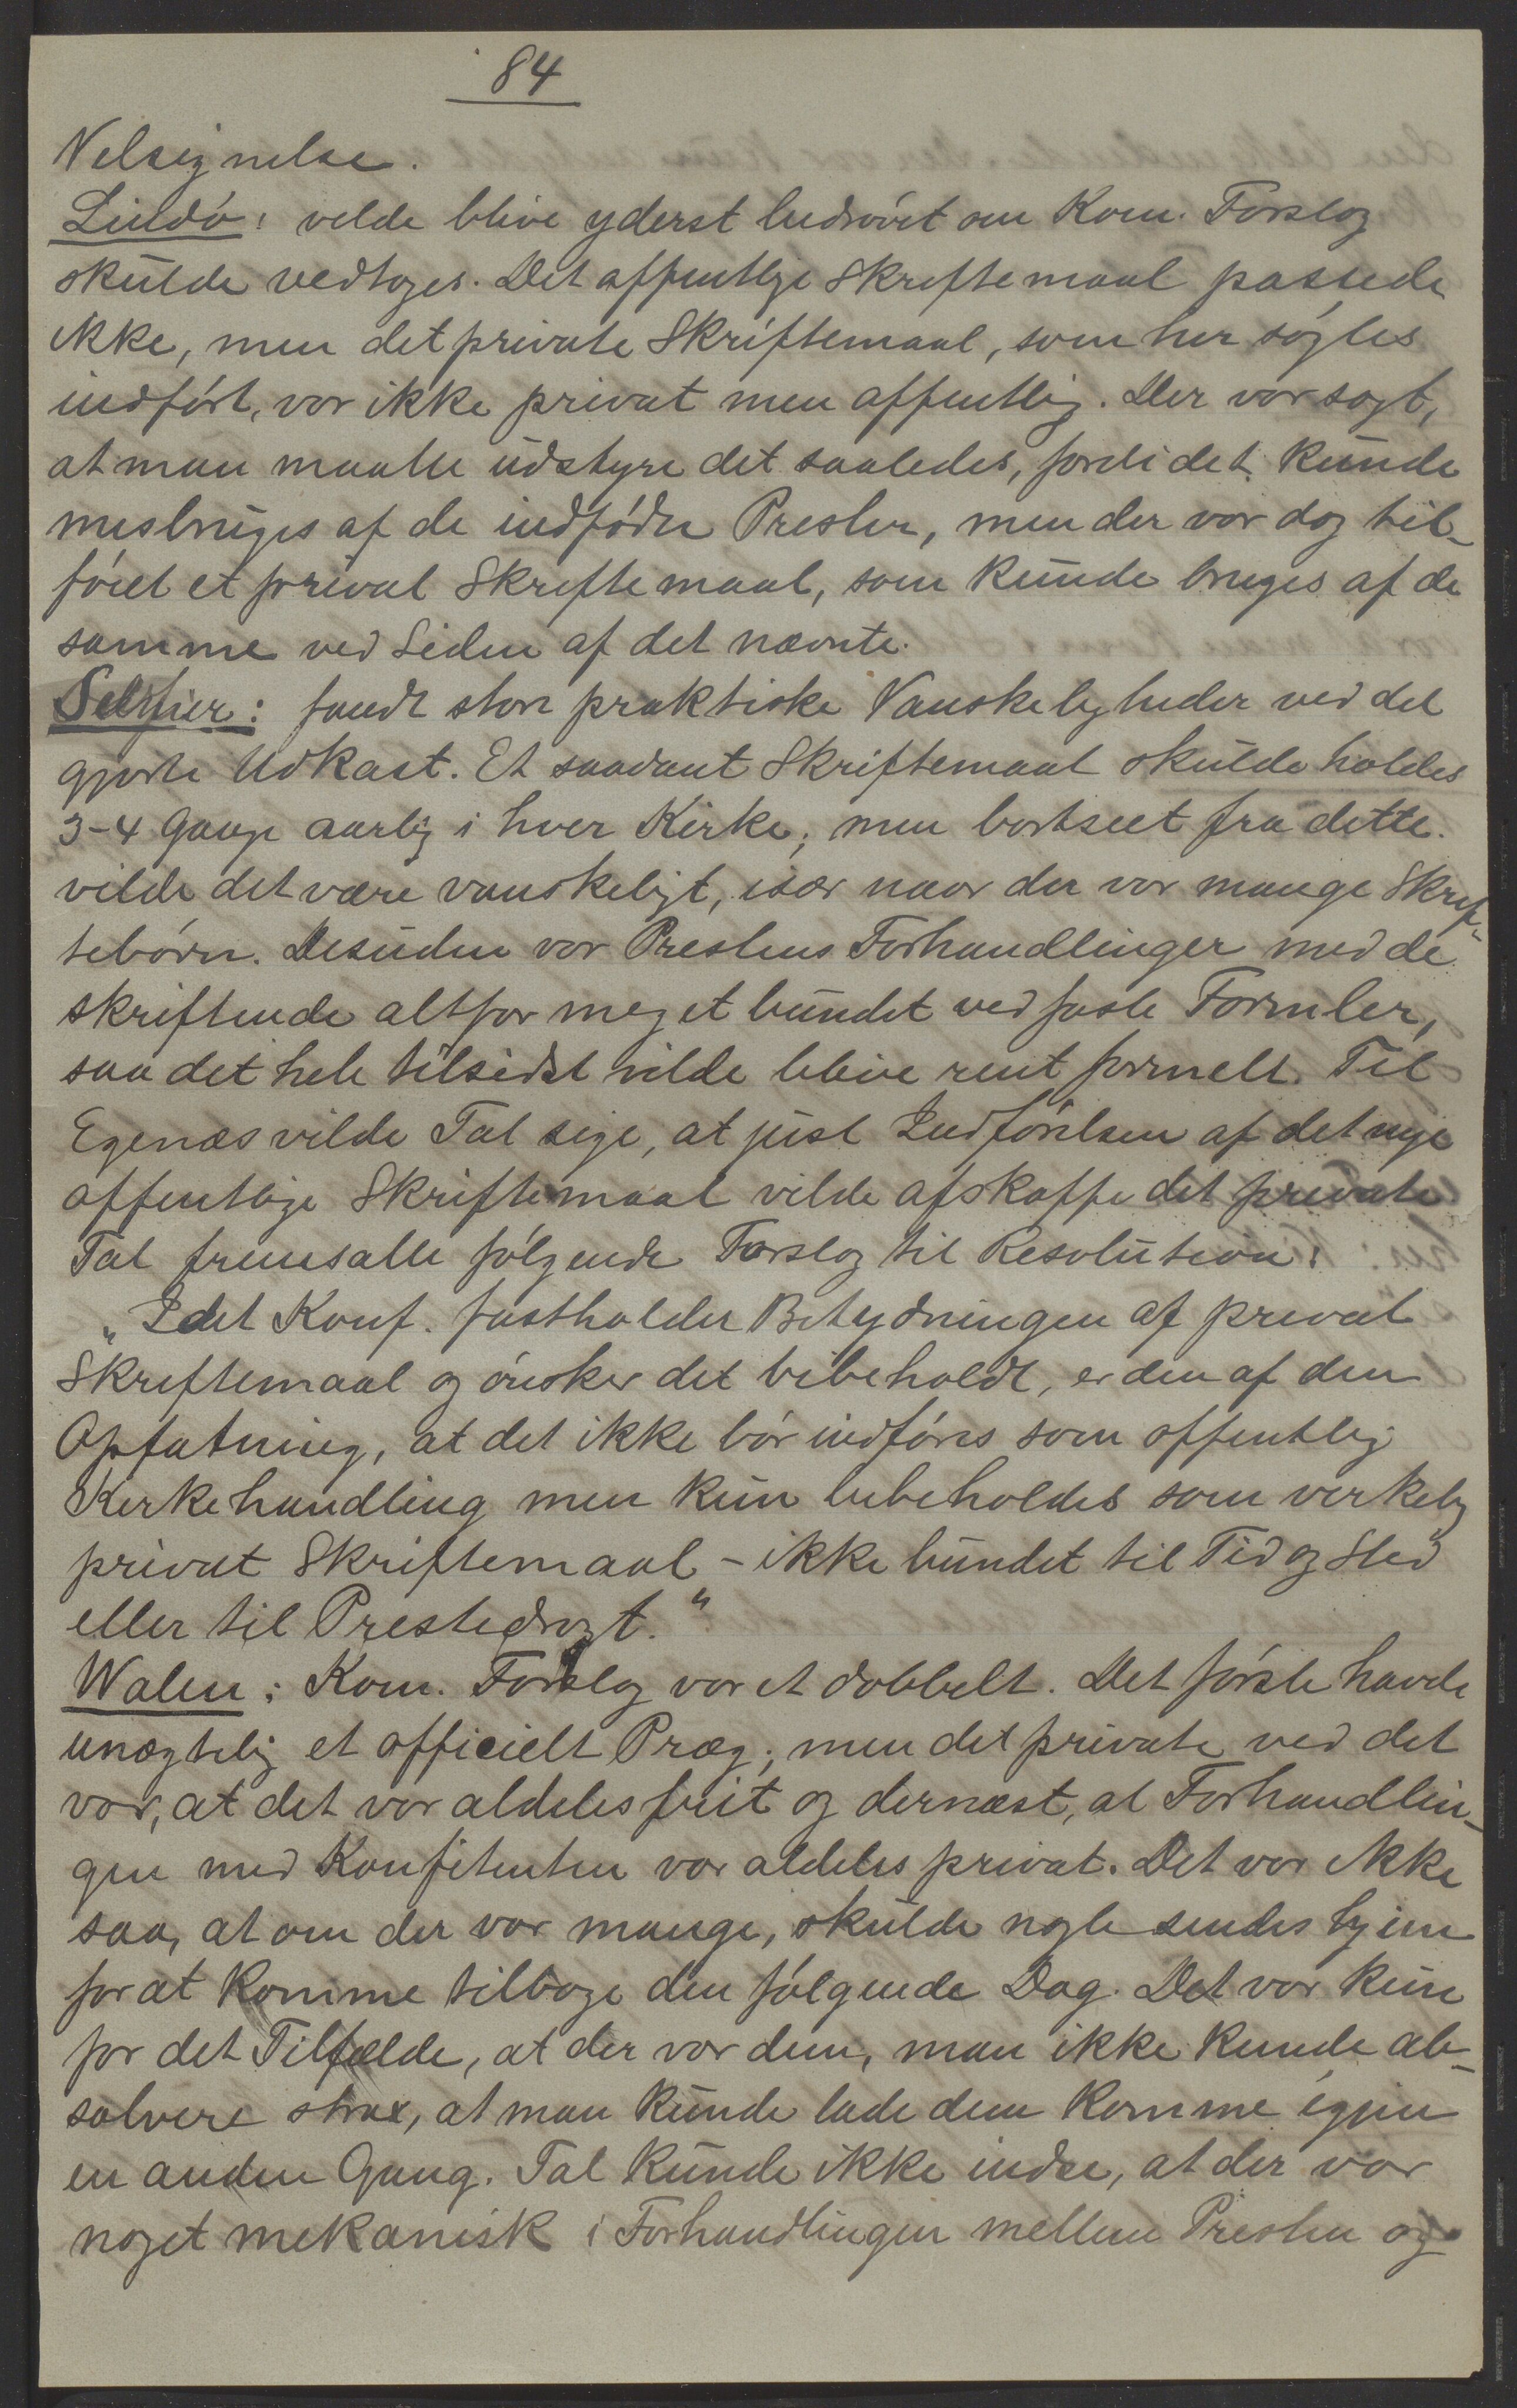 84
Velsignelse.
Lindö: vilde blive yderst bedrövet om Kom. Forslag
skulde vedtages. Det offentlige Skriftemaal passede
ikke, men det private Skriftemaal, som her sögtes
indfört, var ikke privat men offentlig. Der var sagt,
at man maatte udstyre det saaledes, fordi det kunde
misbruges af de indfödte Prester, men der var dog til-
föiet et privat Skriftemaal, som kunde bruges af de
samme ved Siden af det nævnte.
fandt store praktiske Vanskeligheder ved det
gjorte Udkast. Et saadant Skriftemaal skulde holdes
3-4 Gange aarlig i hver Kirke; men bortseet fra dette
vilde det være vanskeligt, især naar der var mange Skrif-
tebörn. Desuden var Prestens Forhandlinger med de
skriftende altfor meget bundet ved faste Formler,
saa det hele tilsidst vilde blive rent formelt. Til
Egenæs vilde Tal sige, at just Indförelsen af det nye
offentlige Skriftemaal vilde afskaffe det private.
Tal fremsatte fölgende Forslag til Resolution:
"Idet Konf. fastholder Betydningen af privat
Skriftemaal og önsker det bibeholdt, er den af den
Opfatning, at det ikke bör indföres som offentlig
Kirkehandling men kun bibeholdes som verkelig
privat Skriftemaal - ikke bundet til Tid og Sted
eller til Prestedragt."
Walen: Kom. Forslag var et dobbelt. Det förste havde
unægtelig et officielt Præg; men det private ved det
var, at det var aldeles frit og dernæst, at Forhandlin-
gen med Konfitenten var aldeles privat. Det var ikke
saa, at om der var mange, skulde nogle sendes hjem
for at komme tilbage den fölgende Dag. Det var kun
for det Tilfælde, at der var dem, man ikke kunde ab-
solvere strax, at man kunde lade dem komme igjen
en anden Gang. Tal kunde ikke indse, at der var
noget mekanisk i Forhandlingen mellem Presten og